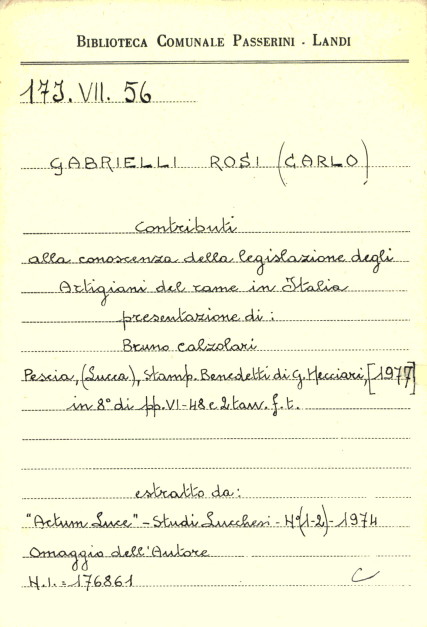 BIBLIOTECA COMUNALE PASSERINI - LANDI
17J. VII. 56
GABRIELLI ROSI (CARLO)
Contributi
alla conoscenza della legislazione degli
Artigiani del rame in Italia
presentazione di:
Bruno Calzolari
Pescia, (Lucca), Stamp. Benedetti di G. Mecciari, [1977]
in 8° di pp. VI-48 e 2 tav. f. t.
estratto da:
"Actum Luce" - Studi Lucchesi - N°(1-2) - 1974
Omaggio dell'Autore
N.I. = 176861